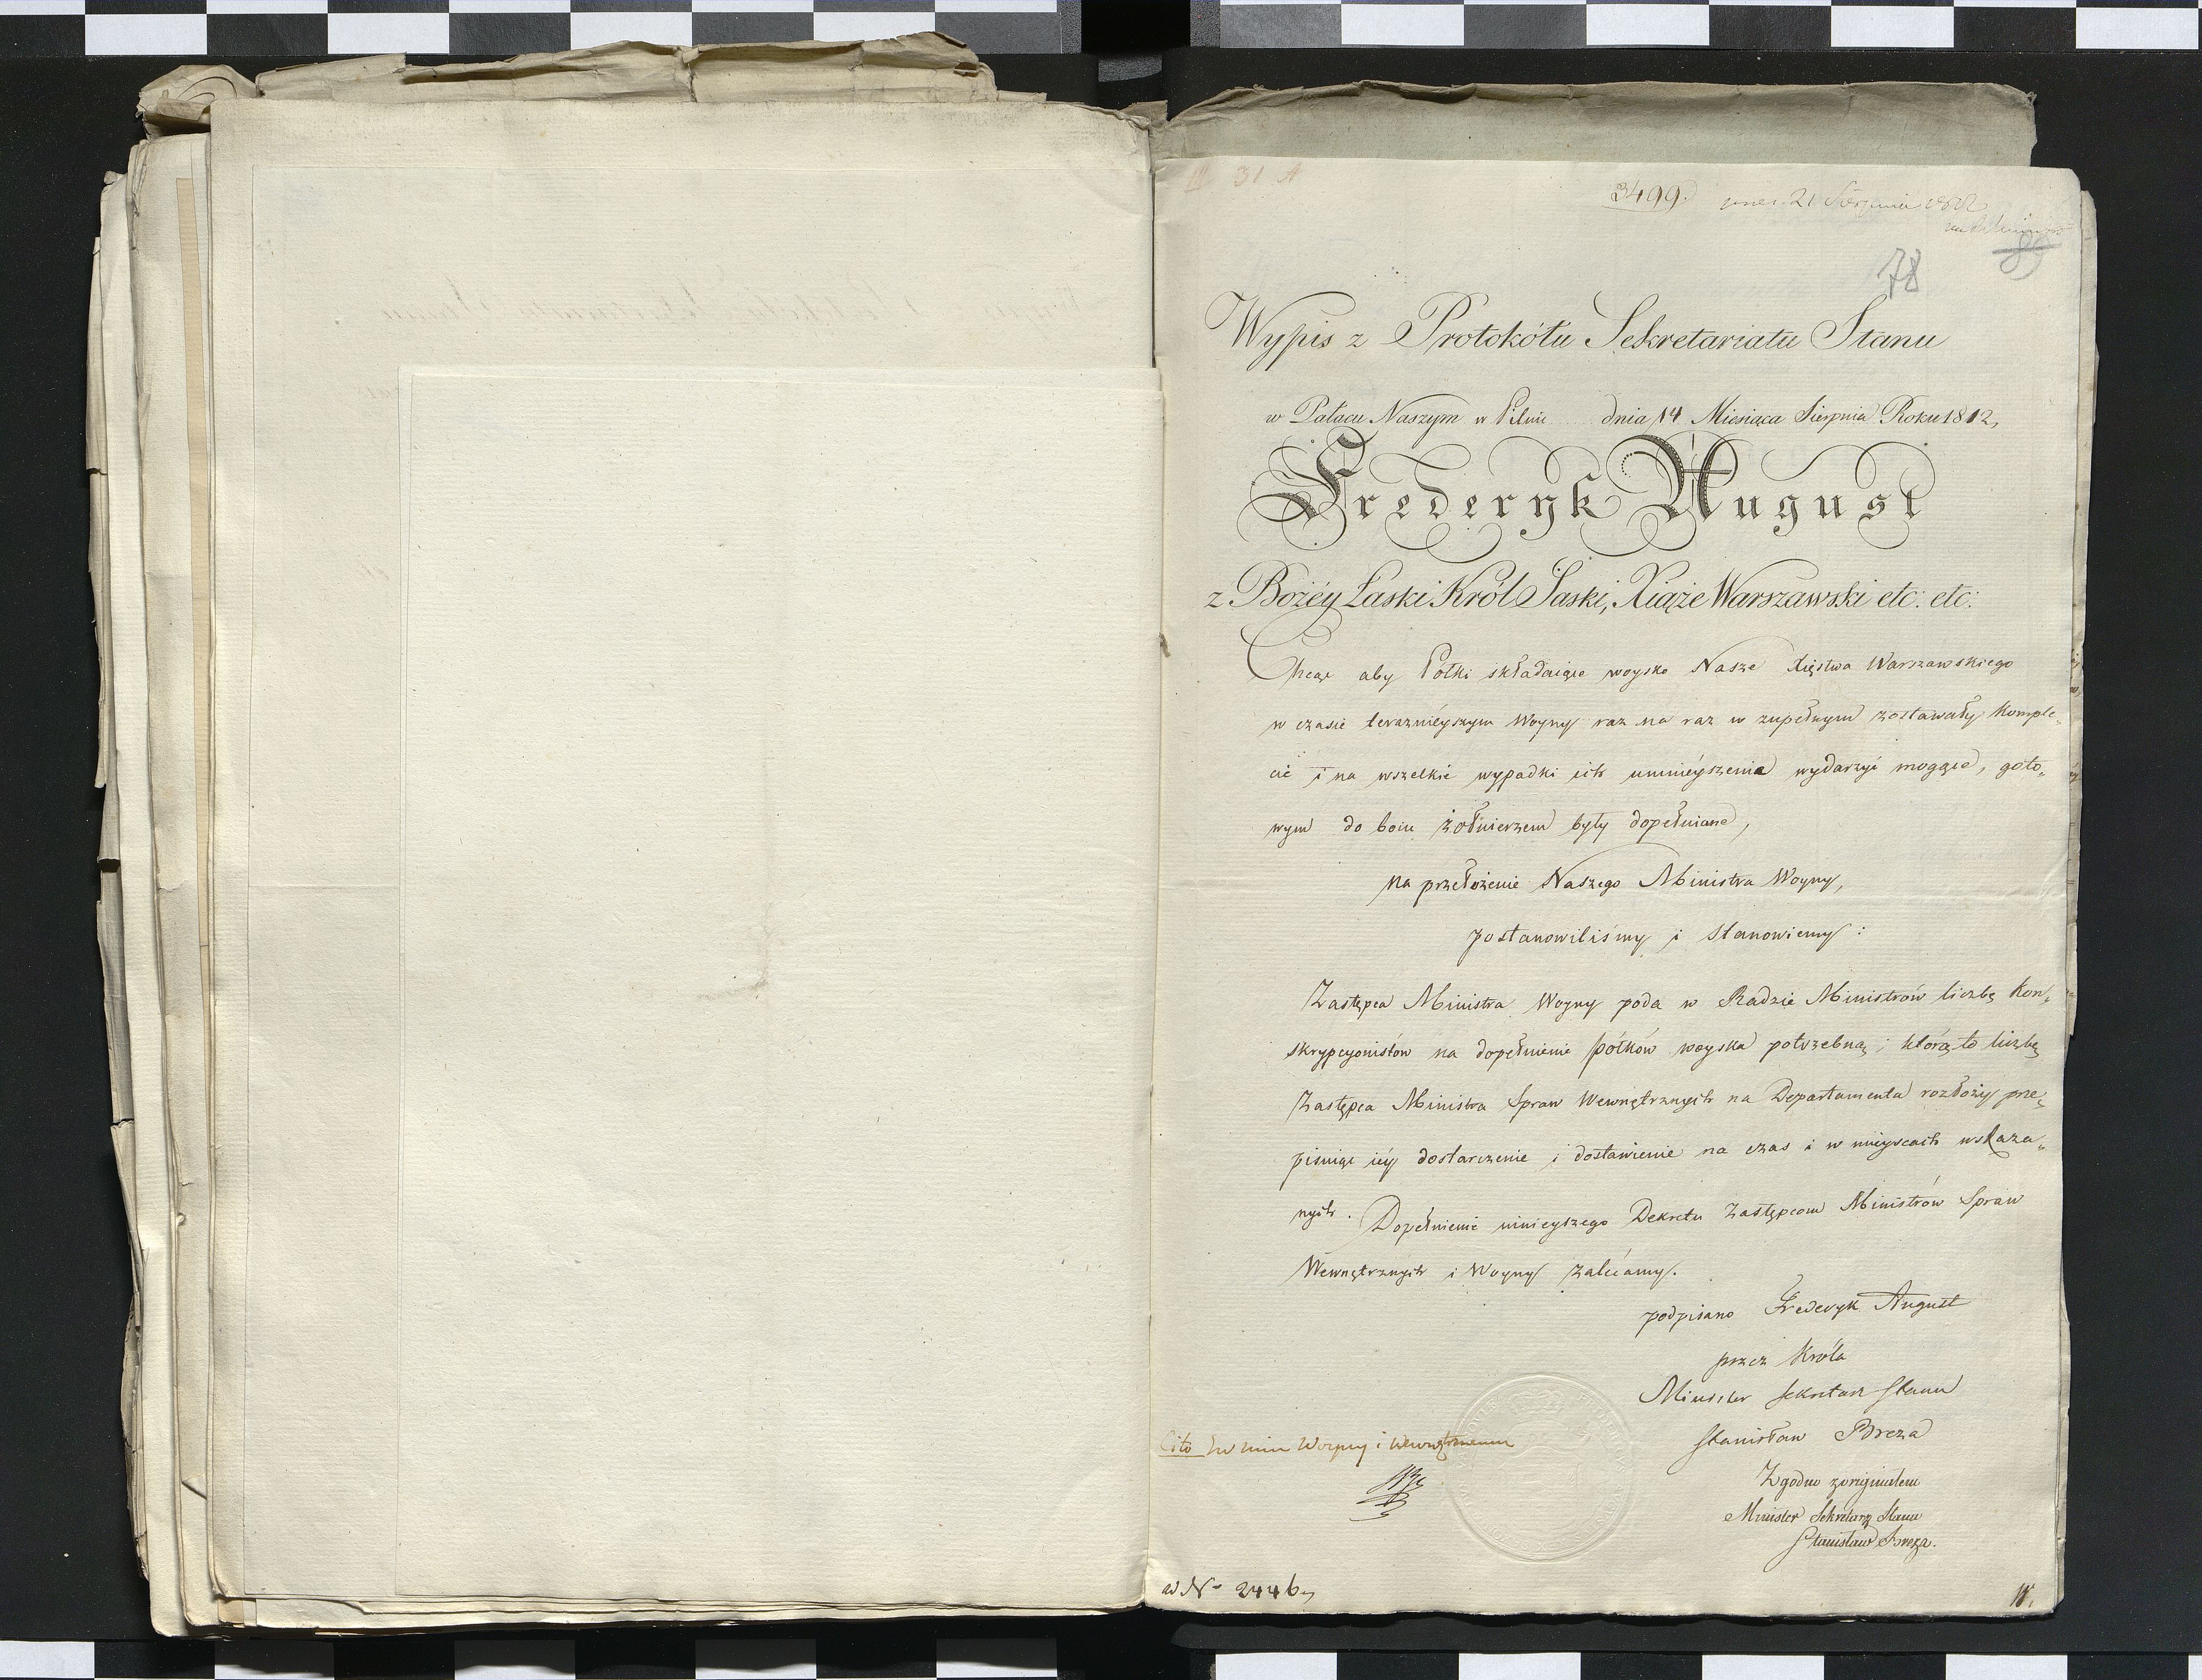 III 31 A
3499. prez. 21 Sierpnia 1812
89
78
Wypis z Protokółu Sekretariatu Stanu
w Pałacu Naszym w Pilnic dnia 14 Miesiąca Sierpnia Roku 1812,
Frederyk August
z Bożéy Łaski Król Saski, Xiąże Warszawski etc: etc:
Chcąc aby Półki składaiące woysko Nasze Xięstwa Warszawskiego
w czasie teraznieyszym Woyny raz na raz w zupełnym zostawały komple„
cie i na wszelkie wypadki ich umnieyszenia wydarzyć mogące, goto„
wym do boiu żołnierzem były dopełniane,
na przełożenie Naszego Ministra Woyny,
postanowiliśmy i stanowiemy:
Zastępca Ministra Woyny poda w Radzie Ministrów liczbę kon„
skrypcyonistów na dopełnienie półków woyska potrzebną; którą to liczbę
Zastępca Ministra Spraw Wewnętrznych na Departamenta rozłoży prze„
pisuiąc iéy dostarczenie i dostawienie na czas i w mieyscach wskaza„
nych. Dopełnienie ninieyszego Dekretu Zastępcom Ministrów Spraw
Wewnętrznych i Woyny zalecamy.
podpisano Frederyk August
przez Króla
Minister Sekretarz Stanu
Stanisław Breza
Cito Woyny i Wewnętrznemu
Zgodno z oryginałem
Minister Sekretarz Stanu
Stanisław Breza.
ad N° 2446,